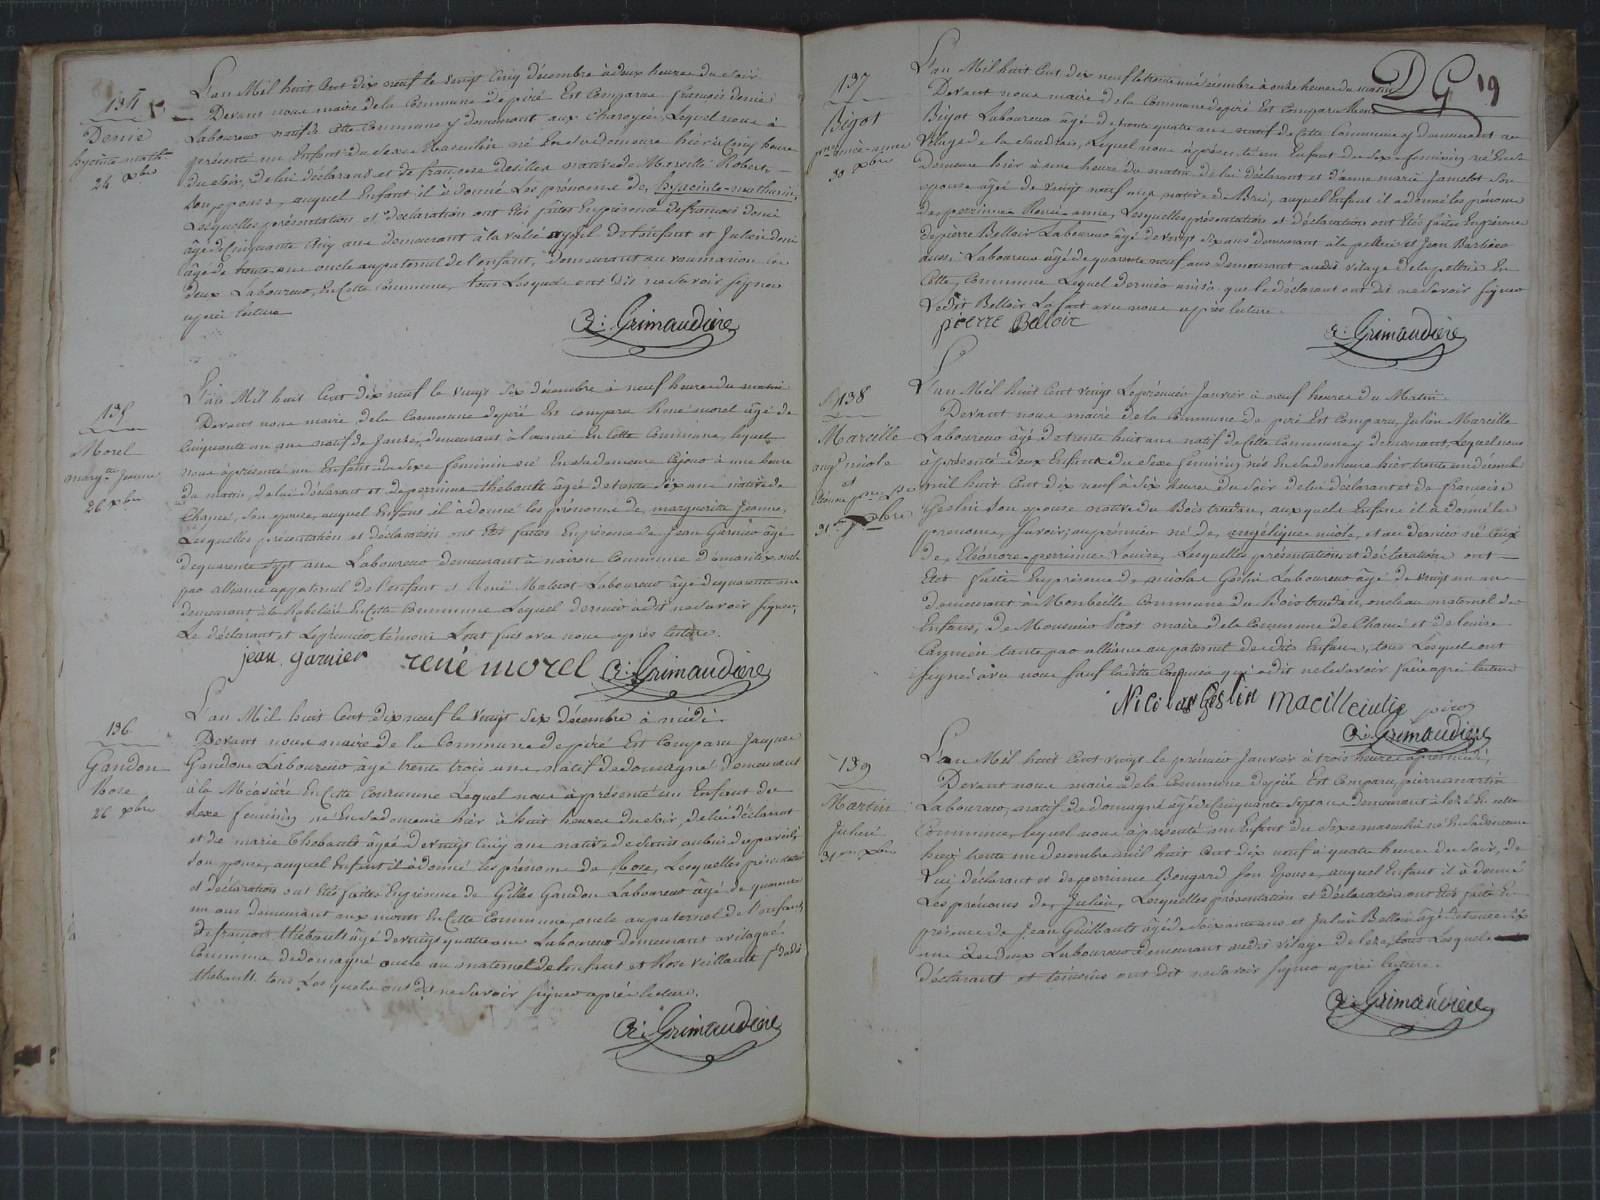 134
Denié
hyacinte math.in
24 xbre
L'an Mil huit Cent dix neuf le vingt Cinq décembre à deux heures du soir
Devant nous maire de la Commune de piré Est Comparu françois denié
Laboureur natif de Cette Commune y demeurant aux Charoyée, Lequel nous à
présenté un Enfant du Sexe Masculin né En sa demeure hier à Cinq heures
du soir, de lui déclarant et de francoise desilles native de
son épouse, auquel Enfant il à donné Les prénoms de, hyacinte-mathurin,
Lesquelles présentation et déclaration ont Etés faites En présence de francois denié
âgé de Cinquante Cinq ans demeurant à la vallé ayeul de l'enfant et Julien denié
âgé de trente un ans oncle au paternel de l'enfant, demeurant au roumarion les
deux Laboureurs, En Cette Commune, tous Lesquels ont dit ne savoir signer
après lecture
R: Grimaudière
135
Morel
marg.te Jeanne
26 xbre
L'an Mil huit Cent dix neuf le vingt six décembre à neuf heures du matin
Devant nous maire de la Commune de piré Est comparu René morel âgé de
Cinquante un ans natif de Janzé, demeurant à En Cette Commune, lequel
nous à présenté un Enfant du Sexe féminin né En sa demeure Ce jour à une heure
du matin, de lui déclarant et de perrinne thebault âgée de trente six ans native de
Chancé, son épouse, auquel Enfant il à donné les prénoms de, marguerite Jeanne,
Lesquelles présentation et déclaration ont Etés faites En présence de Jean Garnier âgé
de quarante sept ans Laboureur demeurant à nairon Commune d'amanlix oncle
par alliance au paternel de l'enfant et René Malecot Laboureur âgé de quarante ans
demeurant à la Rabelais En Cette Commune Lequel dernier à dit ne savoir signer,
Le déclarant et Le premier témoin L'ont fait avec nous après lecture.
jean garnier rené morel R: Grimaudière
136
Gandon
Rose
26 xbre
L'an Mil huit Cent dix neuf le vingt Six décembre à midi
Devant nous maire de la Commune de piré Est Comparu Jacques
Gandon Laboureur âgé trente trois ans natif de domagné demeurant
à la Méasière En Cette Commune Lequel nous à présenté un Enfant du
sexe féminin né En sa demeure hier à huit heures du soir, de lui déclarant
et de marie Thebault âgée de vingt Cinq ans native de Saint aubin du pavail
son épouse, auquel Enfant il à donné les prénoms de Rose, Lesquelles présentation
et déclaration ont Etés faites En présence de Gilles Gandon Laboureur âgé de quarante
un ans demeurant aux monts En Cette Commune, oncle au paternel de l'enfant,
de francois thébault âgé de vingt quatre ans Laboureur demeurant
Commune de domagné oncle au maternel de l'enfant et Rose Veillault
thébault tous Lesquels ont dit ne savoir signer après lecture.
R: Grimaudière
D G 19
137
Bigot
p.ne renée-anne
30 xbre
L'an Mil huit Cent dix neuf le trente un décembre à onze heures du matin
Devant nous maire de la Commune de piré Est Comparu René
Bigot Laboureur âgé de trente quatre ans natif de Cette Commune y demeurant au
Village de la Lequel nous à présenté un Enfant du Sexe féminin né En sa
demeure hier à une heure du matin de lui déclarant et d'anne marie Jamelot Son
épouse âgée de vingt neuf ans native de Brie, auquel Enfant il a donné les prénoms
de perrinne Renée anne, Lesquelles présentation et déclaration ont Etés faites En présence
de pierre Belloir Laboureur âgé de vingt six ans demeurant à la peltrie et Jean Barbier
aussi Laboureur âgé de quarante neuf ans demeurant audit Village de la peltrie En
Cette Commune Lequel dernier ainsi que le déclarant ont dit ne savoir signer
Ledit Belloir La fait avec nous après lecture.
pierre Belloir
R: Grimaudière
138
Marcille
ang.e nicole
et
Eléonore p.ne L.se
31 xbre
L'an Mil huit Cent vingt Le premier Janvier à neuf heures du Matin
Devant nous maire de la Commune de piré Est Comparu Julien Marcille
Laboureur âgé de trente huit ans natif de Cette Commune y demeurant, Lequel nous
à présenté deux Enfans du Sexe féminin nés En sa demeure hier trente un décembre
mil huit Cent dix neuf à six heures du soir de lui déclarant et de francoise
Geslin son épouse native du Bois trudan, auxquels Enfans il à donné les
prenoms, Savoir, au premier né de, angélique nicole, et au dernier né Ceux
de Eléonore-perrinne Louise, Lesquelles présentation et déclaration ont
Etés faites En présence de nicolas Geslin Laboureur âgé de vingt un ans
demeurant à Monbeille Commune du Bois trudan, oncle au maternel des
Enfans, de Monsieur Pirot maire de la Commune de Chancé et de louise
tante par alliance au paternel des dits Enfans, tous Lesquels ont
signé avec nous sauf ladite qui à dit ne le savoir faire après lecture
Nicolas Geslin Marcille julie piros
R: Grimaudière
139
Martin
Julien
31 xbre
L'an Mil huit Cent vingt le premier Janvier à trois heures après midi,
Devant nous maire de la Commune de piré Est Comparu, pierre martin
Laboureur, natif de domagné âgé de Cinquante sept ans demeurant à lézé En cette
Commune, lequel nous à présenté un Enfant du Sexe masculin né En sa demeure
hier trente un décembre mil huit Cent dix neuf à quatre heures du soir, de
Lui déclarant et de perrinne Bougard son Epouse, auquel Enfant il à donné
Les prénoms de, Julien, Lesquelles présentation et déclaration ont Etés faite En
présence de Jean Guillault âgé de soixante ans et Julien Belloir âgé de trente six
ans Les deux Laboureurs demeurant audit village de lézé, tous Lesquels
déclarant et témoins ont dit ne savoir signer après lecture.
R: Grimaudière